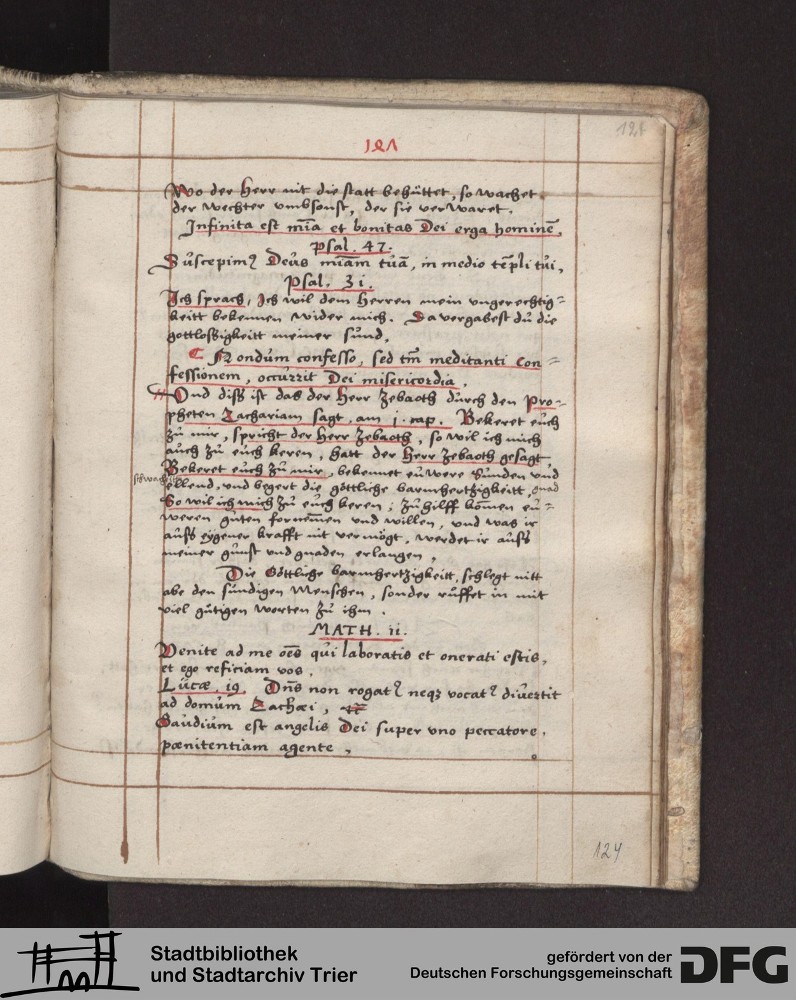 121
121
Wo der Herr nit die statt behüttet, so wachet
der wechter vmbsonst, der sie verwaret.
Infinita est mīa et bonitas Dei erga hominē,
Psal. 47.
Suscepimꝰ Deus mīam tuā, in medio tēpli tui,
Psal. 31.
Ich sprach, Ich wil dem Herren mein vngerechtig=
keitt bekennen wider mich. Da vergabest du die
gottloßigkeitt meiner sünd.
Nondum confesso, sed tm̄ meditanti con=
fessionem, occurrit Dei misericordia.
Vnd diß ist das der Herr Zebaoth durch den Pro=
pheten Zachariam sagt, am j. cap. Bekeret euch
zu mir, spricht der Herr Zebaoth, so wil ich mich
auch zu euch keren, hatt der Herr Zebaoth gesagt
Bekeret euch zu mir, bekennet euwere Sünden vnd
ellend, vnd begert die göttliche barmhertzigkeitt, gnad
So wil ich mich zu euch keren; zu hilff kommen eu=
weren guten fornemen vnd willen, vnd was ir
auß eygener krafft nit vermögt, werdet ir auß
meiner gunst vnd gnaden erlangen,
Die Göttliche barmhertzigkeitt, schlegt nitt
abe den sündigen Menschen, sonder rüffet in mit
viel gütigen worten zu ihm.
MATH. ii.
Venite ad me oēs qui laboratis et onerati estis,
et ego reficiam vos.
Lucæ. 19. Dn̄s non rogatꝰ neqꝫ vocatꝰ diuertit
ad domum Zachæi,
Gaudium est angelis Dei super vno peccatore,
pœnitentiam agente,
124
Stadtbibliothek
und Stadtarchiv Trier
gefördert von der
Deutschen Forschungsgemeinschaft
DFG